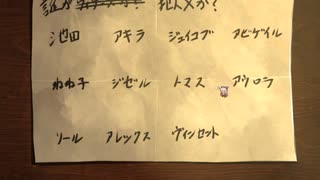 誰が 犯人か?
池田 アキラ ジェイコブ アビゲイル
ねね子 ジゼル トマス アウロラ
リール アレックス ヴィンセント